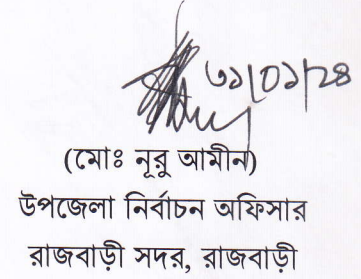 ৩১/০১/২৪
(মোঃ নূরু আমীন)
উপজেলা নির্বাচন অফিসার
রাজবাড়ী সদর, রাজবাড়ী